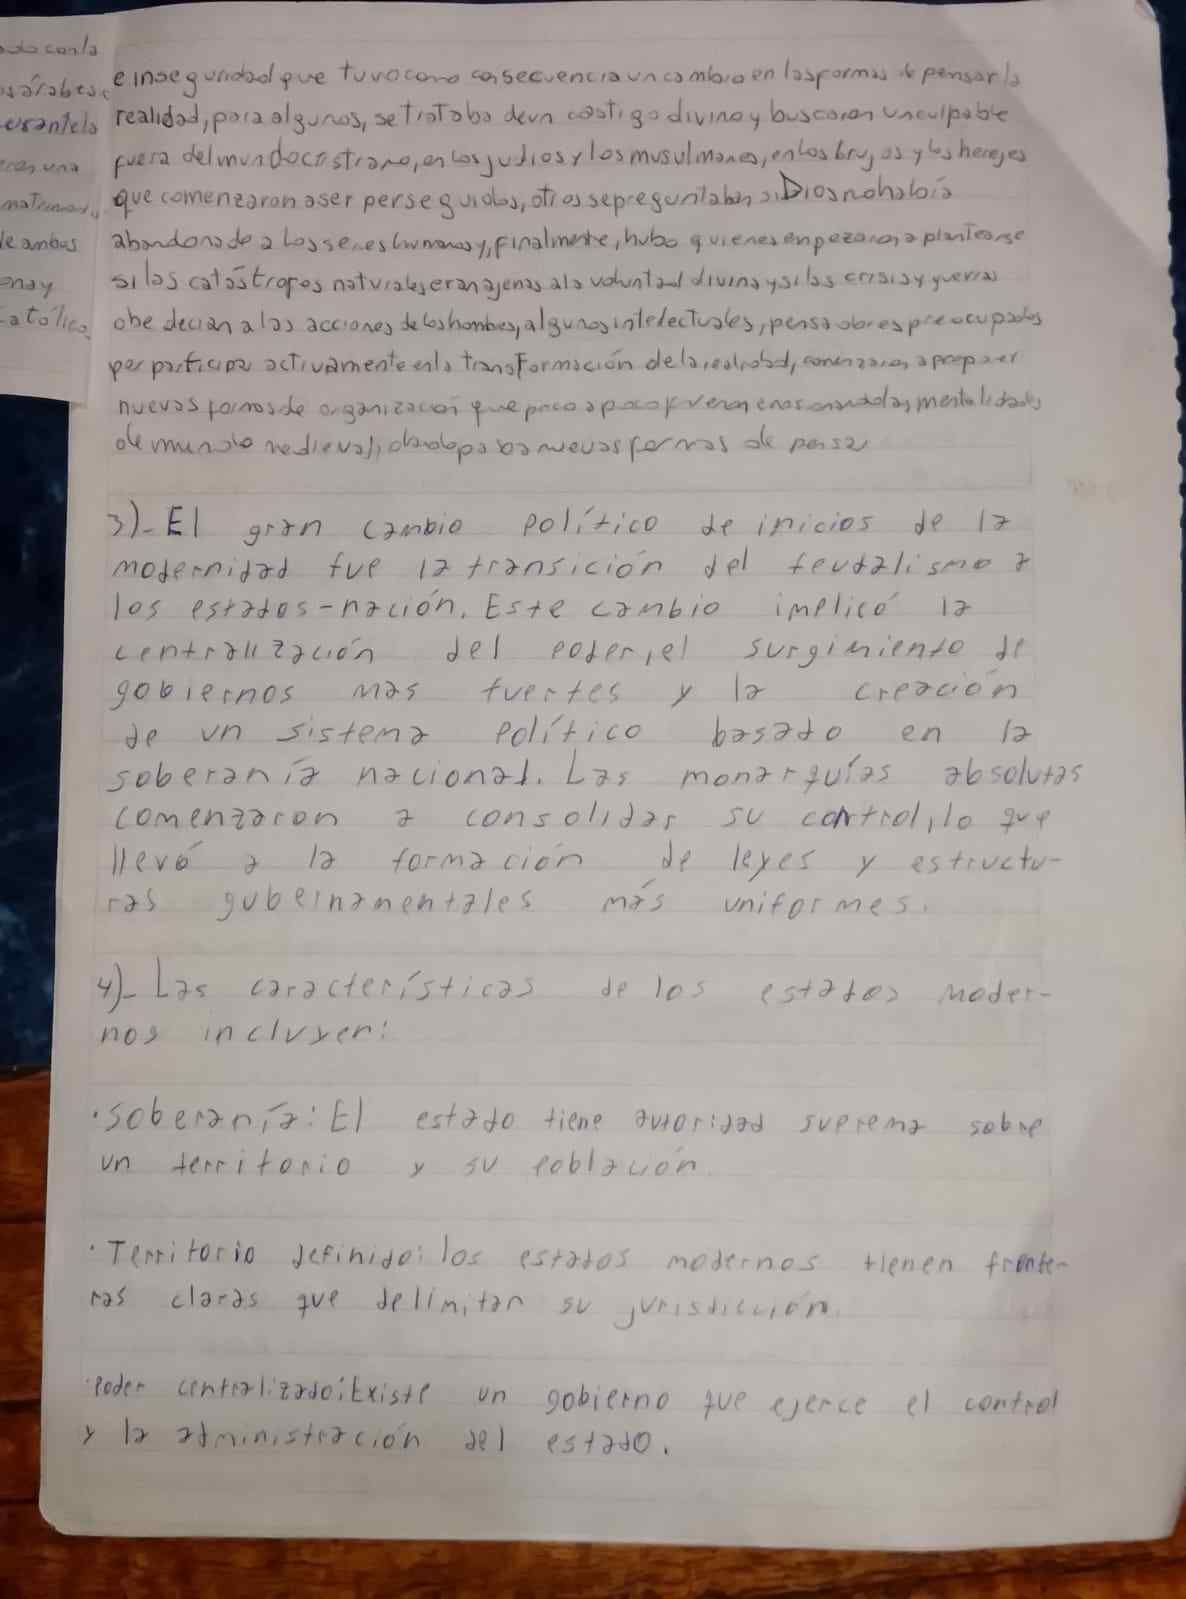 do con la
árabes
durante la
eran una
matrimon
de ambas
en a y
católico
e inseguridad que tuvo como consecuencia un cambio en las formas de pensar la
realidad, para algunos, se trataba de un castigo divino y buscaron un culpable
fuera del mundo cristiano, en los judios y los musulmanes, en los brujos y los herejes
que comenzaron a ser perseguidos, otros se preguntaban si Dios no había
abandonado a los seres humanos y, finalmente, hubo quienes enpezaron a plantearse
si las catástrofes naturales eran ajenas a la voluntad divina y si las crisis y guerras
obedecian a las acciones de los hombres, algunos intelectuales, pensadores preocupados
por participar activamente en la transformación de la realidad, comenzaron a proponer
nuevas formas de organización que poco a poco fueron erosionando las mentalidades
de mundo medieval, dando paso a nuevas formas de pensar
3)- El gran cambio político de inicios de la
modernidad fue la transición del feudalismo a
los estados-nación. Este cambio implicó la
centralización del poder, el surgimiento de
gobiernos mas fuertes y la creación
de un sistema político basado en la
soberanía nacional. Las monarquías absolutas
comenzaron a consolidar su control, lo que
llevó a la formación de leyes y estructu-
ras gubernamentales más uniformes.
4)- Las características de los estados moder-
nos incluyen:
·Soberanía: El estado tiene autoridad suprema sobre
un territorio y su población.
·Territorio definido: los estados modernos tienen fronte-
ras claras que delimitan su jurisdicción.
·Poder centralizado: Existe un gobierno que ejerce el control
y la administración del estado.